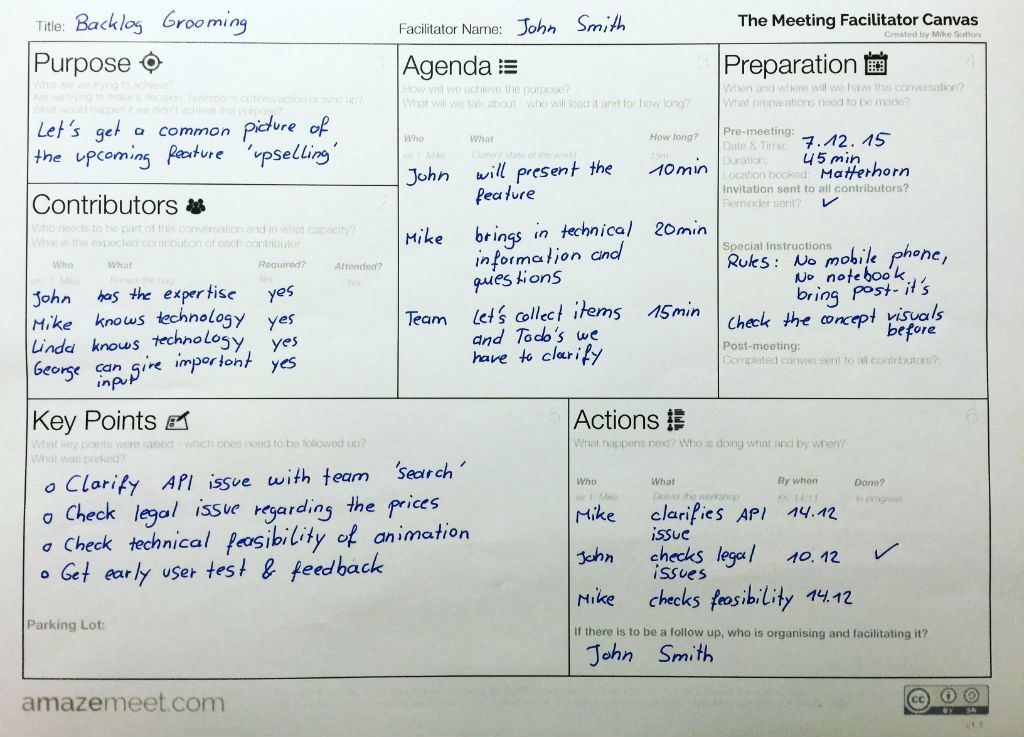 Title: Backlog Grooming
Facilitator Name: John Smith
The Meeting Facilitator Canvas
Created by Mike Sutton
Purpose
1
What are we trying to achieve?
Are we trying to make a decision, brainstorm options/action or sync up?
What would happen if we didn't achieve this purpose?
Let's get a common picture of
the upcoming feature 'upselling'
Contributors
2
Who needs to be part of this conversation and in what capacity?
What is the expected contribution of each contributor
Who What Required? Attended?
ex: 1: Mike Knows the bug Yes Yes
John has the expertise yes
Mike knows technology yes
Linda knows technology yes
George can give important yes
input
Agenda
3
How will we achieve the purpose?
What will we talk about - who will lead it and for how long?
Who What How long?
ex 1: Mike Current state of the world 15m
John will present the 10min
feature
Mike brings in technical 20min
information and
questions
Team Let's collect items 15min
and Todo's we
have to clarify
Preparation
4
When and where will we have this conversation?
What preparations need to be made?
Pre-meeting:
Date & Time: 7.12.15
Duration: 45min
Location booked: Matterhorn
Invitation sent to all contributors?
Reminder sent? ✓
Special Instructions
Rules: No mobile phone,
No notebook,
bring post-it's
Check the concept visuals
before
Post-meeting:
Completed canvas sent to all contributors?:
Key Points
5
What key points were raised - which ones need to be followed up?
What was parked?
o Clarify API issue with team 'search'
o Check legal issue regarding the prices
o Check technical feasibility of animation
o Get early user test & feedback
Parking Lot:
Actions
6
What happens next? Who is doing what and by when?
Who What By when Done?
ex: 1: Mike Deliver the workshop Fri, 14/11 In progress
Mike clarifies API 14.12
issue
John checks legal 10.12 ✓
issues
Mike checks feasibility 14.12
If there is to be a follow up, who is organising and facilitating it?
John Smith
amazemeet.com
cc BY SA
v1.1